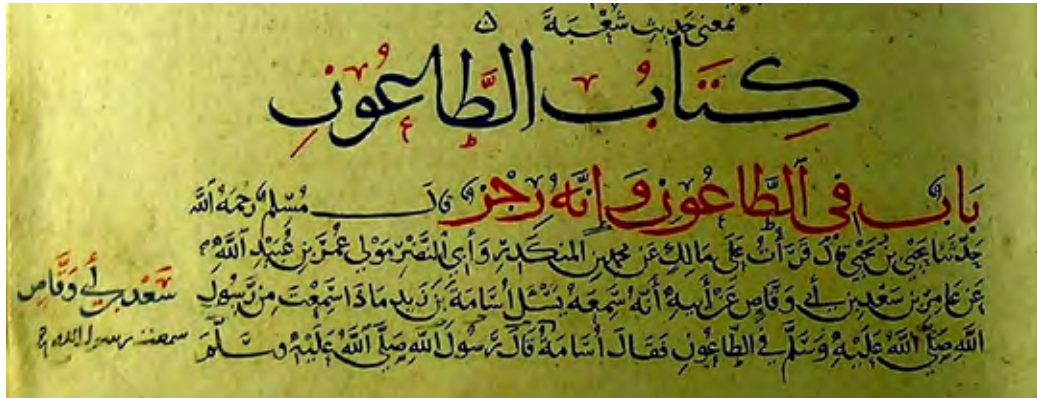 بمعنى حديث شعبة
كتاب الطاعون
باب في الطاعون وانه رجز قال مسلم رحمه الله
حدثنا يحيى بن يحيى قال قرأت على مالك عن محمد بن المنكدر وأبي النضر مولى عمر بن عبيد الله
عن عامر بن سعد بن أبي وقاص عن أبيه أنه سمعه يسئل أسامة بن زيد ماذا سمعت من رسول
الله صلى الله عليه وسلم في الطاعون فقال أسامة قال رسول الله صلى الله عليه وسلم
سعد بن أبي وقاص
رسول الله